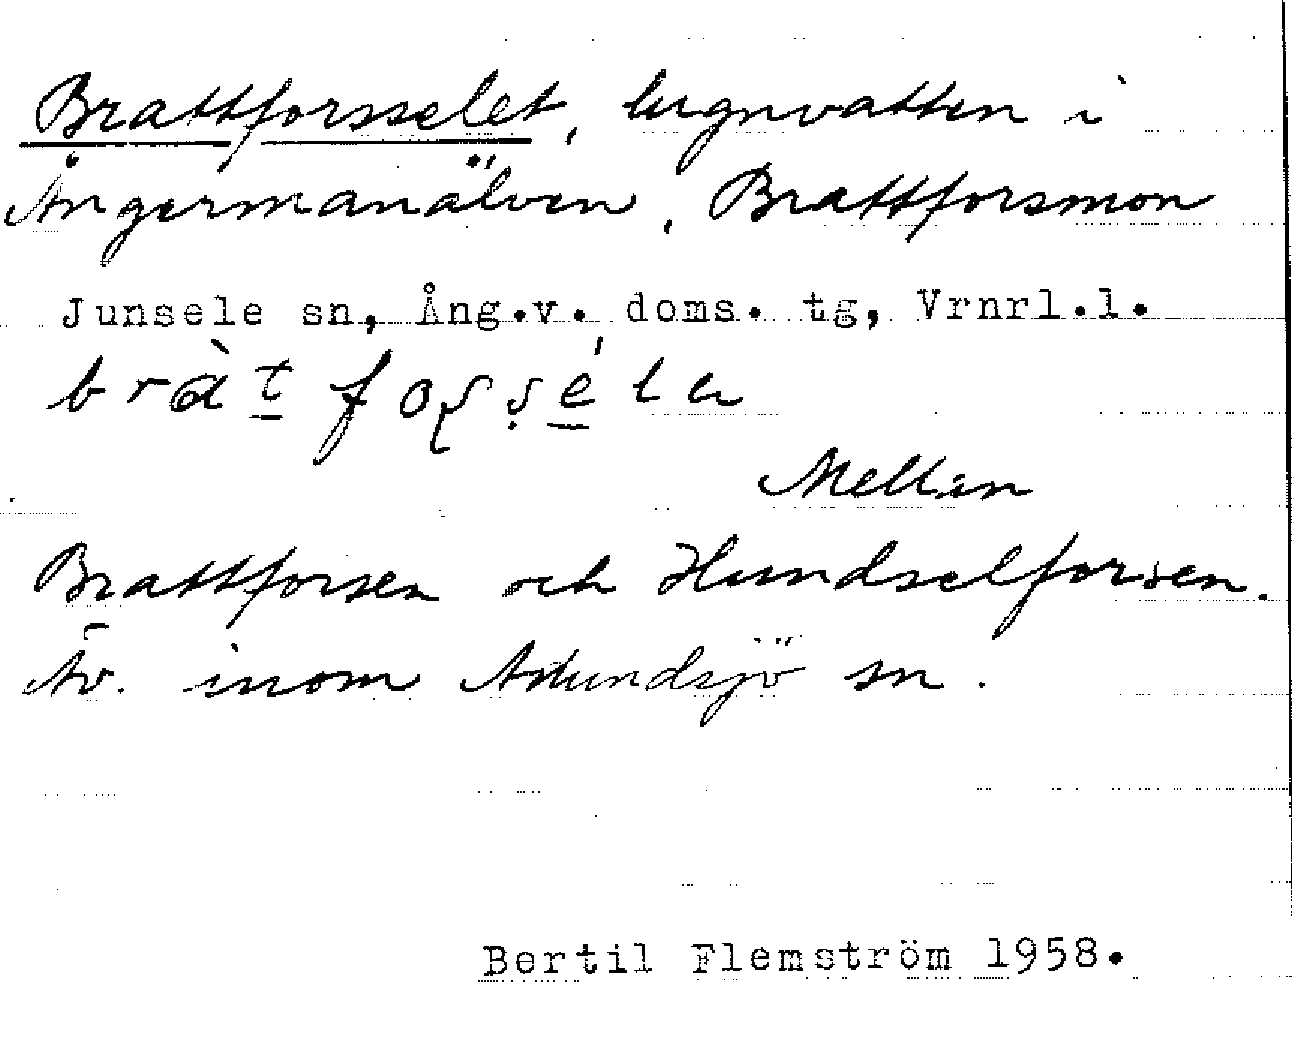 Brattforsselet, lugnvatten i
Ångermanälven, Brattforsmon
Junsele sn, Ång.v. doms. tg, Vrnrl.l.
Mellan
Brattforsen och Hundselforsen.
Äv. inom Ådalslidens sn.
Bertil Flemström 1958.